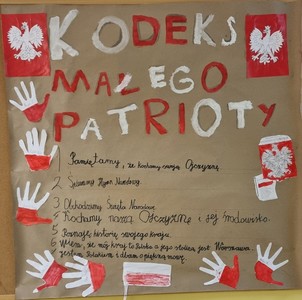 KODEKS
MAŁEGO
PATRIOTY
1 Pamiętamy, że kochamy swoją Ojczyznę
2 Śpiewamy Hymn Narodowy.
3 Obchodzimy Święta Narodowe.
4 Kochamy naszą Ojczyznę i jej środowisko.
5 Poznaję historię swojego kraju.
6 Wiem, że mój kraj to Polska a jej stolicą jest Warszawa
jestem Polakiem i dbam o piękną mowę.